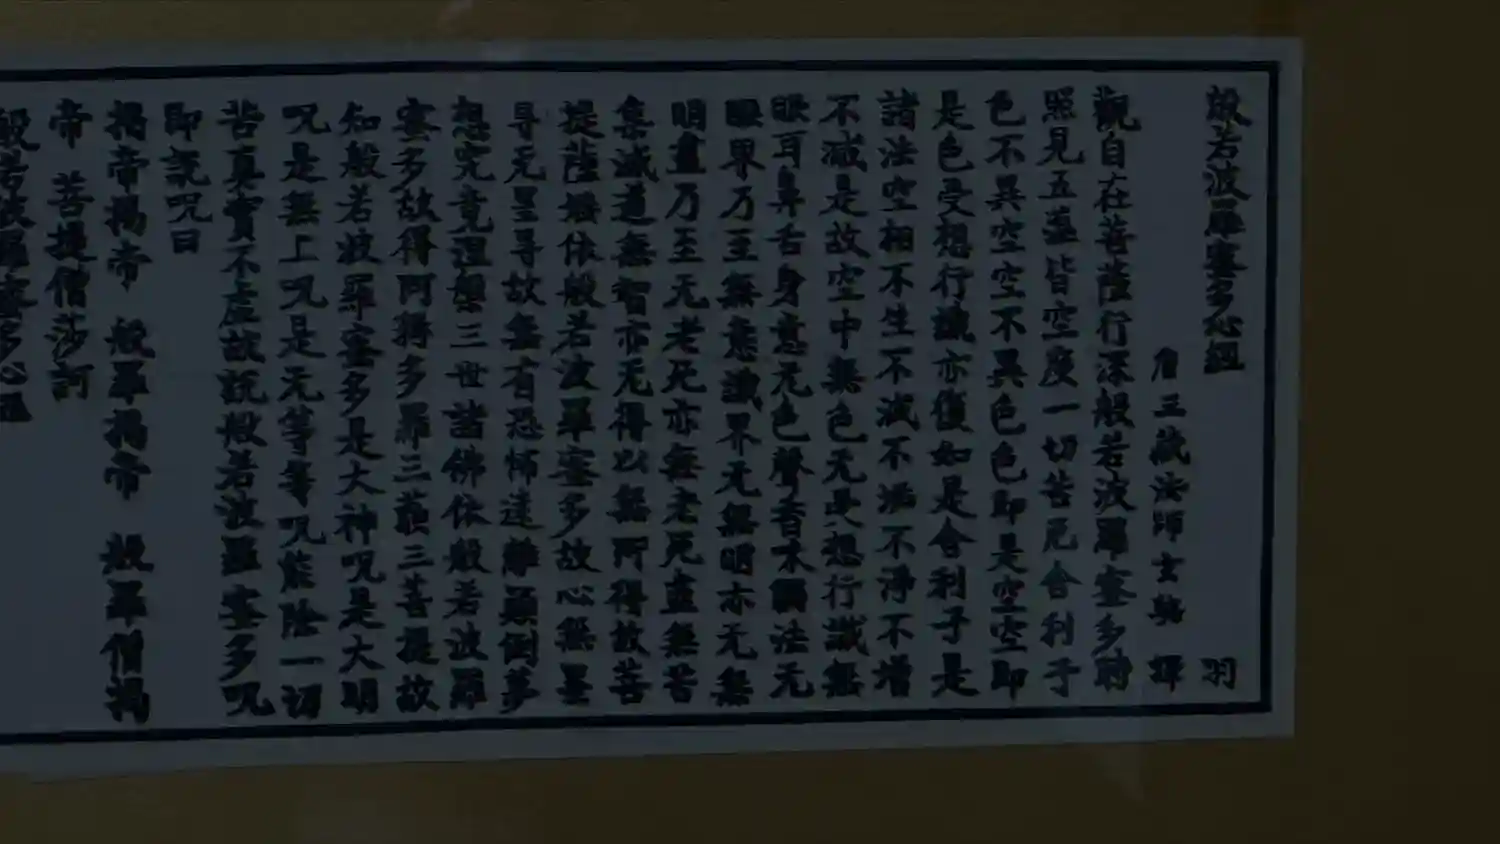 般若波羅蜜多心經 羽
唐三藏法師玄奘 譯
觀自在菩薩行深般若波羅蜜多時
照見五蘊皆空度一切苦厄舍利子
色不異空空不異色色即是空空即
是色受想行識亦復如是舍利子是
諸法空相不生不滅不垢不淨不增
不減是故空中無色无受想行識無
眼耳鼻舌身意无色聲香味觸法无
眼界乃至無意識界无無明亦无無
明盡乃至无老死亦無老死盡無苦
集滅道無智亦无得以無所得故菩
提薩埵依般若波羅蜜多故心無罣
导无罣导故無有恐怖遠離顛倒夢
想究竟涅槃三世諸佛依般若波羅
蜜多故得阿耨多羅三藐三菩提故
知般若波羅蜜多是大神呪是大明
呪是無上呪是无等等呪能除一切
苦真實不虛故說般若波羅蜜多呪
即說呪曰
揭帝揭帝 般羅揭帝 般羅僧揭
帝 菩提僧莎訶
般若波羅蜜多心經